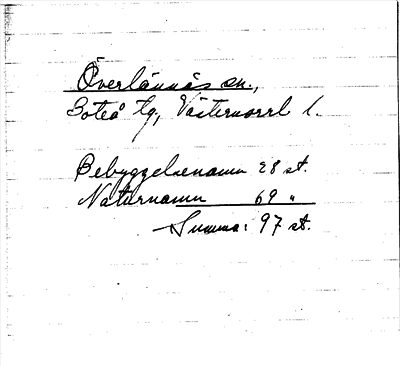 Överlännäs sn.,
Boteå tg, Västernorrl l.
Bebyggelsenamn 28 st.
Naturnamn 69 "
Summa: 97 st.